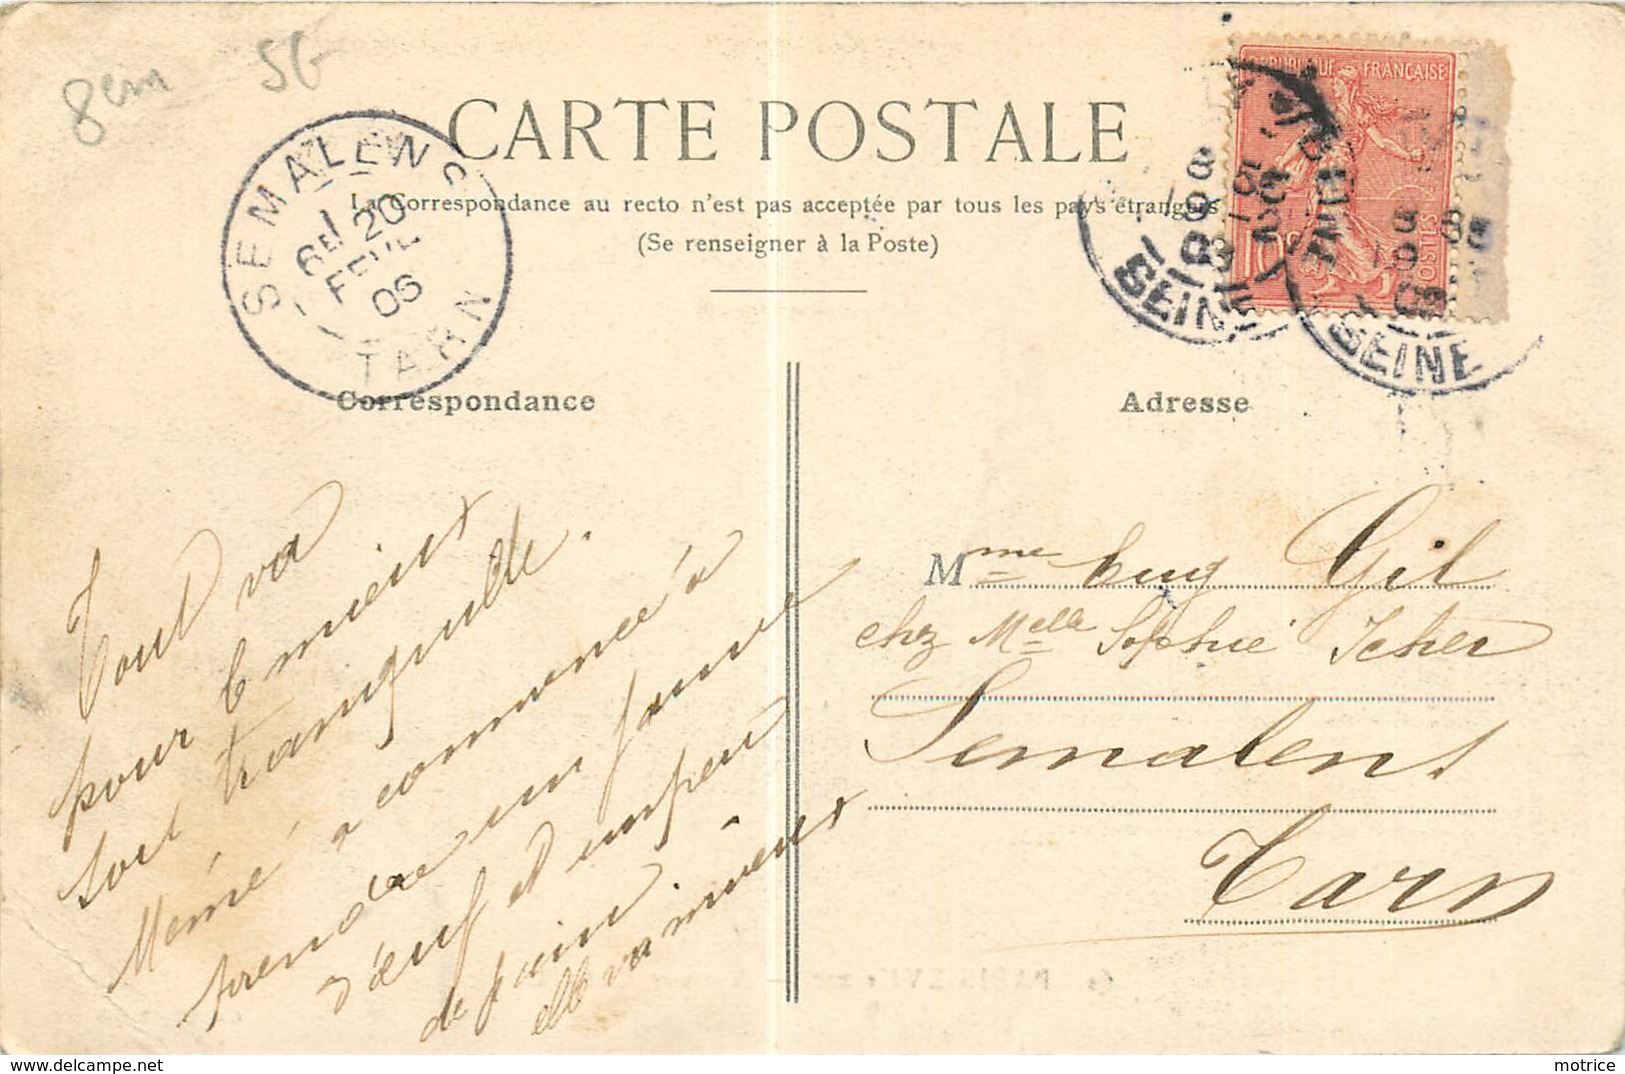 8em 5f
CARTE POSTALE
La Correspondance au recto n'est pas acceptée par tous les pays étrangers
(Se renseigner à la Poste)
SEMALENS
20
FEVR
06
TARN
REPUBLIQUE FRANÇAISE
POSTES
SEINE
SEINE
Correspondance
Adresse
Tout va
pour le mieux
soit tranquille.
Mémé a commencé à
prendre un jaune
d'œuf et un peu
de pain
elle va mieux
Mme Eug Gil
chez Melle Sophie Icher
Semalens
Tarn
motrice